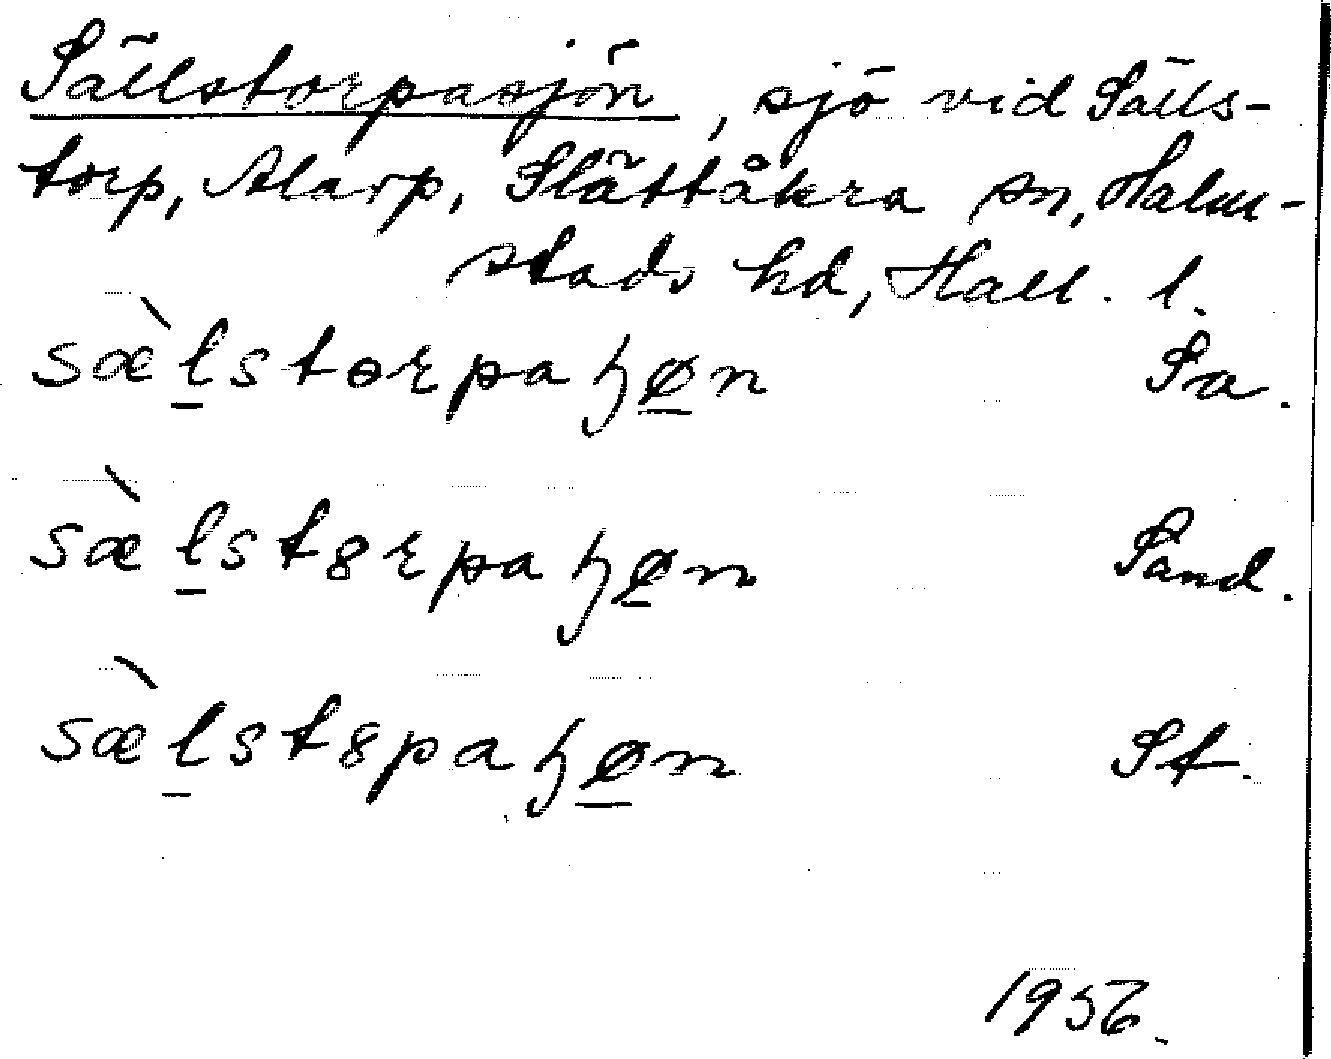 Sällstorpasjön, sjö vid Sälls-
torp, Alarp, Slättåkra sn, Halm-
stads hd, Hall. l.
sæ̀l̲storpaɧø̲n Sa.
sæ̀l̲st8rpaɧø̲n Sand.
sæ̀l̲st8paɧø̲n St.
1956.